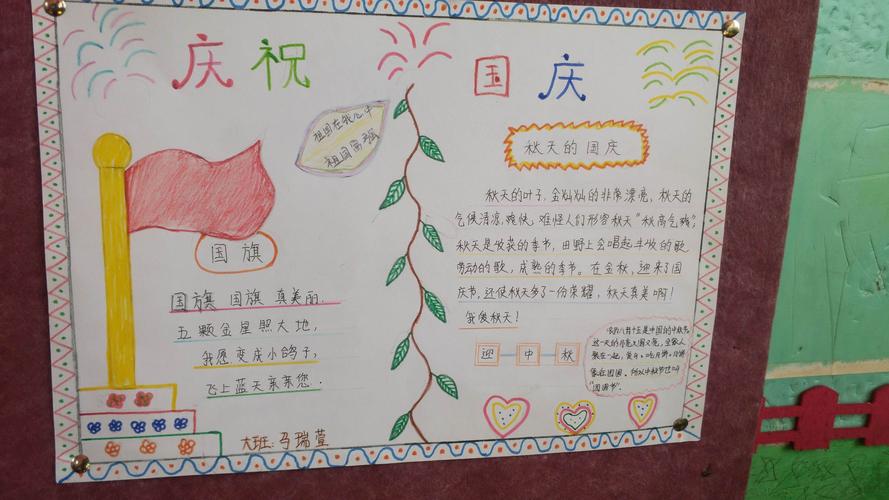 庆祝
国庆
祖国在我心中
祖国富强
国旗
国旗 国旗 真美丽,
五颗金星照大地,
我愿变成小鸽子,
飞上蓝天亲亲您.
大班:马瑞萱
秋天的国庆
秋天的叶子,金灿灿的非常漂亮,秋天的
气候清凉,爽快,难怪人们形容秋天"秋高气爽",
秋天是收获的季节,田野上会唱起丰收的歌
劳动的歌,成熟的季节。在金秋,迎来了国
庆节,还使秋天多了一份荣耀,秋天真美啊!
我爱秋天!
迎中秋
农历八月十五是中国的中秋节
这一天的月亮又圆又亮,全家人
聚在一起,赏月、吃月饼
家庭团圆。所以中秋节也叫
"团圆节".